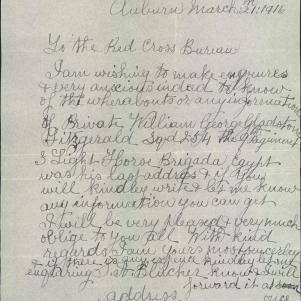 Auburn March 21. 1916
To the Red Cross Bureau
I am wishing to make enqueres
& very anxious indeed to know
of the whereabouts or any information
of Private William George Gladstone
Fitzgerald Sqd 254 9th Regiment
3 Light Horse Brigada Egypt
was his last address & if you
will kindley write & let me know
any information you can get
I will be very pleased & very much
oblige to you all With kind
regards I am Yours most sincerley
if there is any expence kindley let
enquiring Blucher know & I will
forward it as soon
address